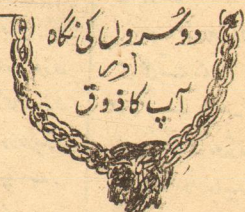 دوسروں کی نگاہ
اور
آپ کا ذوق